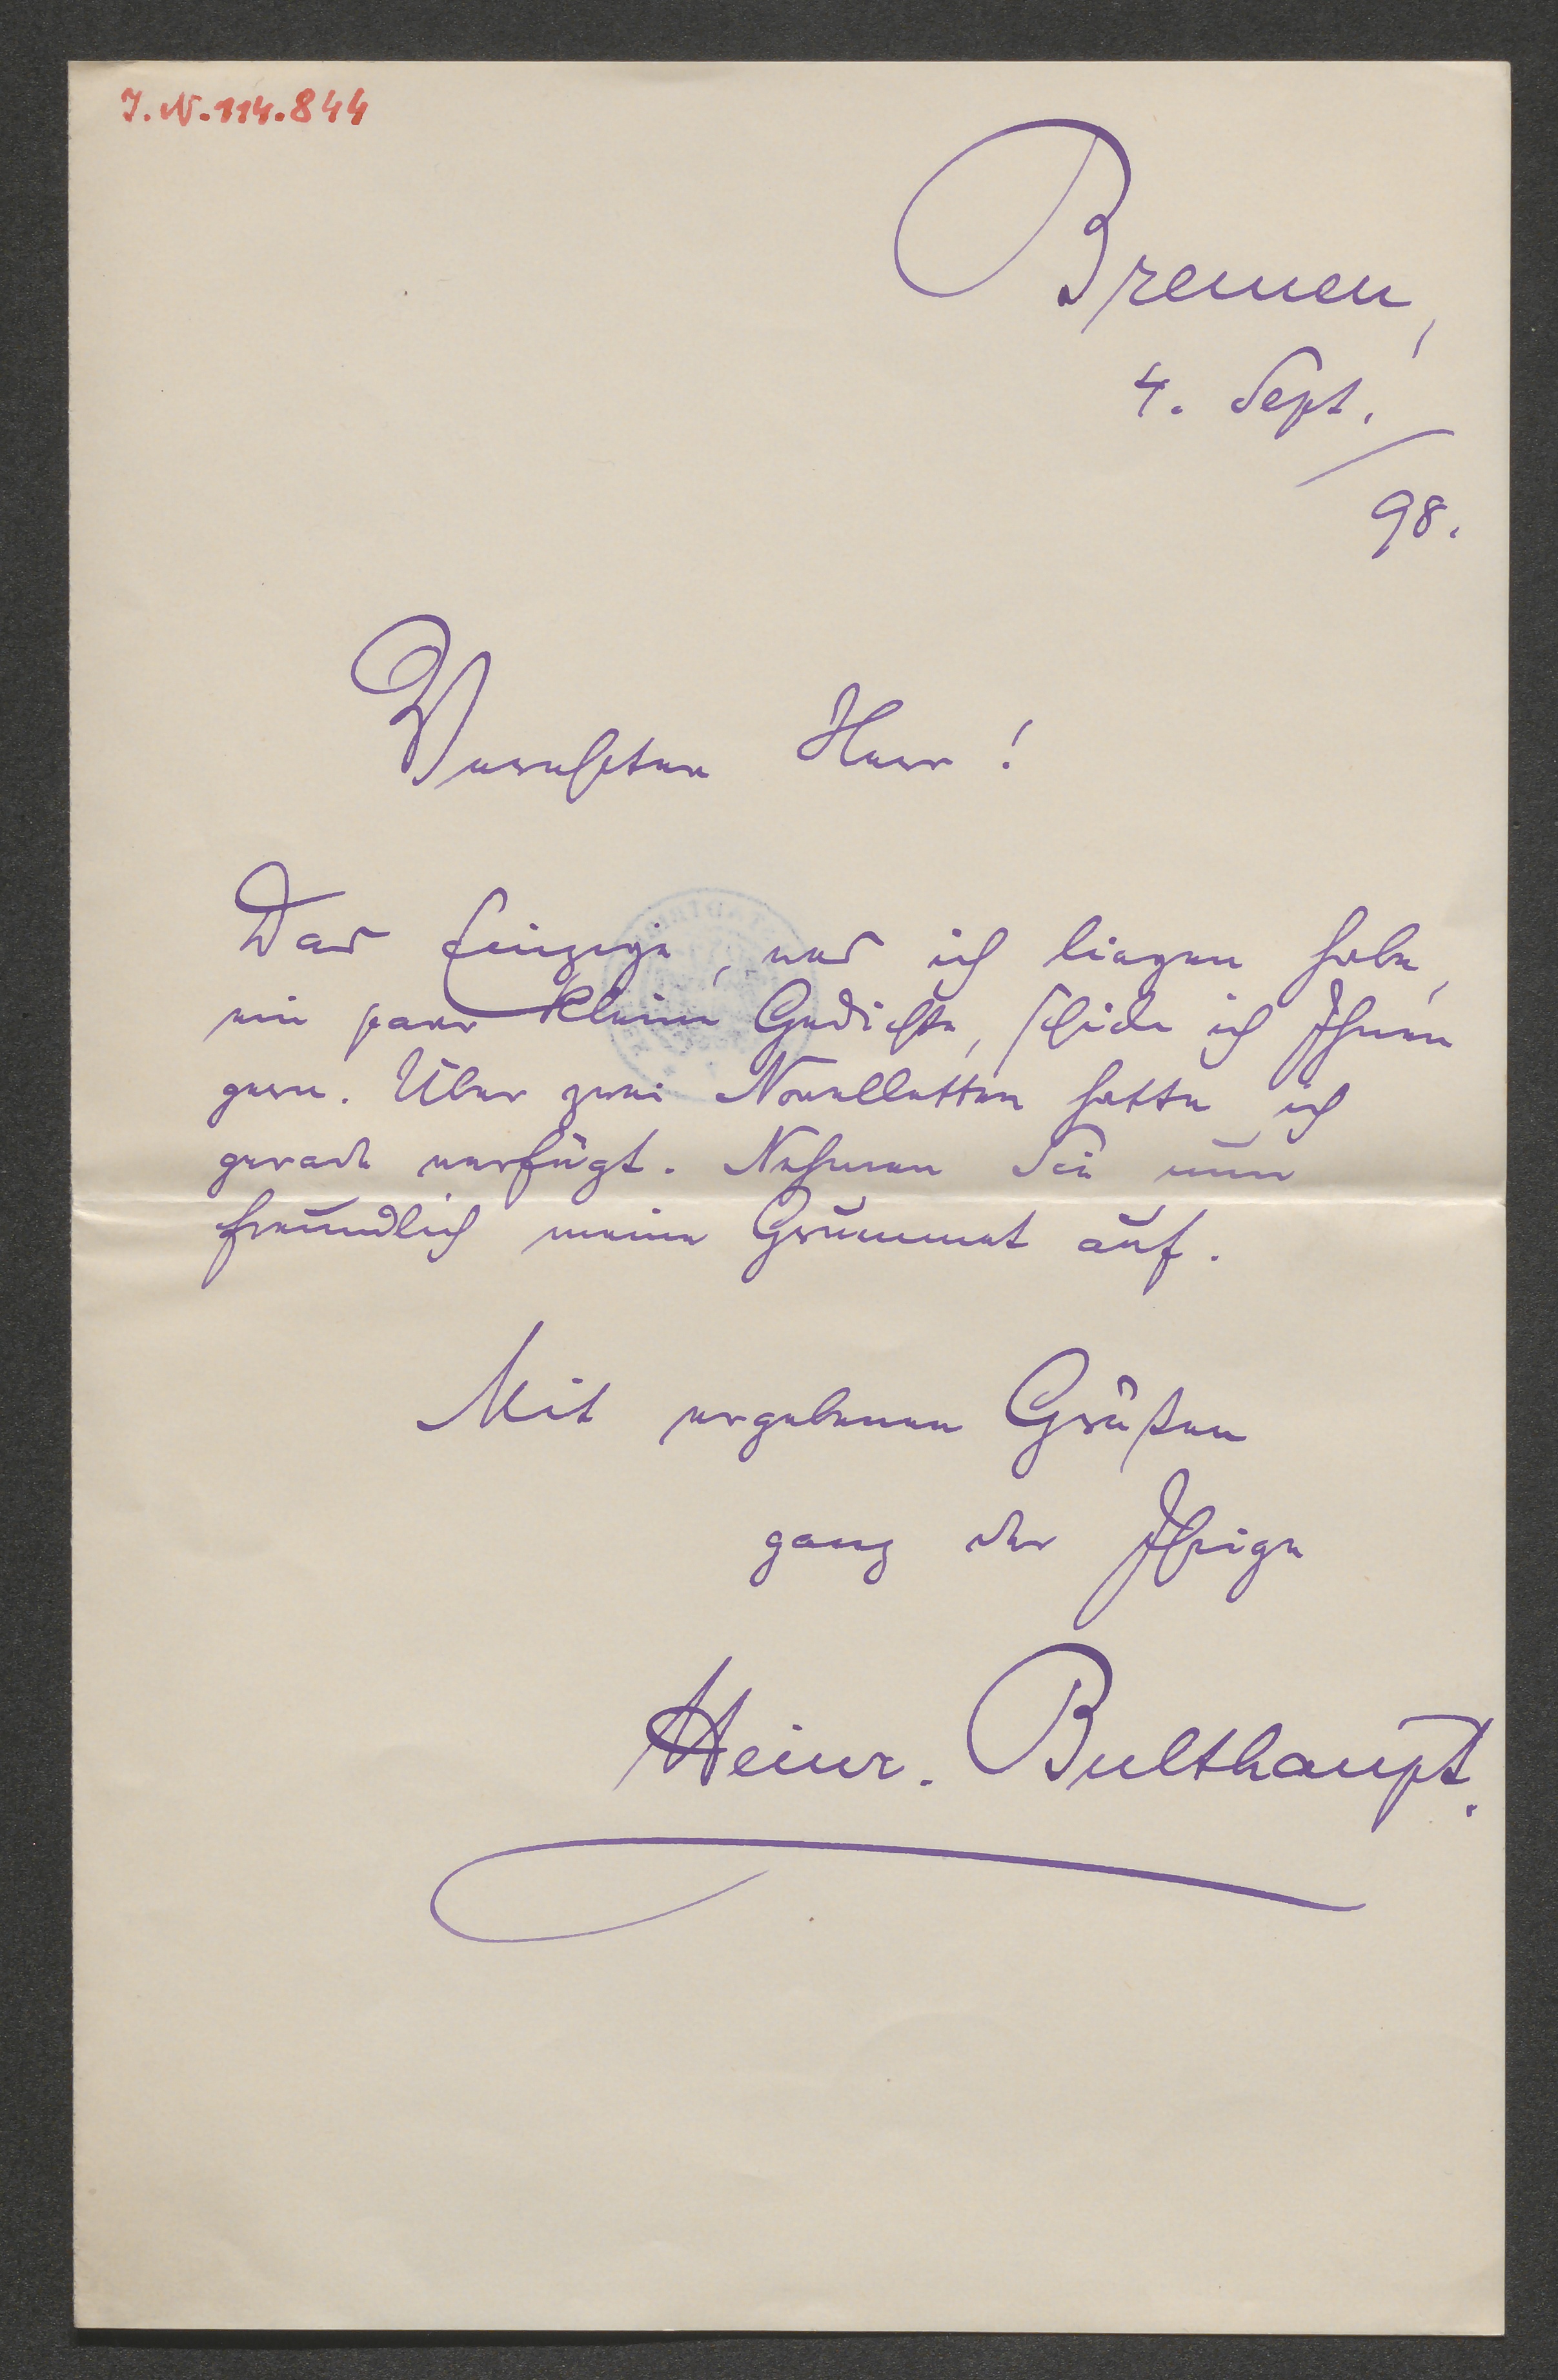 J. N. 114.844
Bremen,
4. Sept.
/
98.
Verehrter Herr!
Das Einzige, was ich liegen habe,
ein paar kleine Gedichte, schicke ich Ihnen
gern. Über zwei Novelletten hatte ich
gerade verfügt. Nehmen Sie nun
freundlich meine Grummet auf.
Mit ergebenen Grüßen
ganz der Ihrige
Heinr. Bulthaupt.